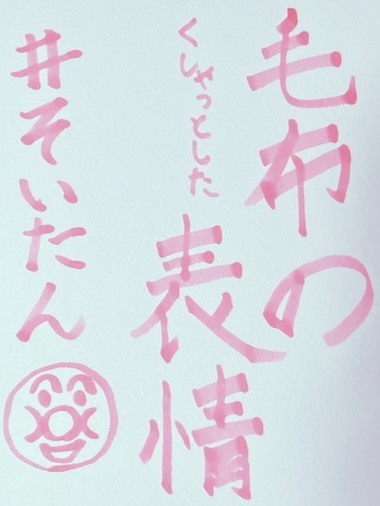 毛布の
くしゃっとした
表情
#そいたん